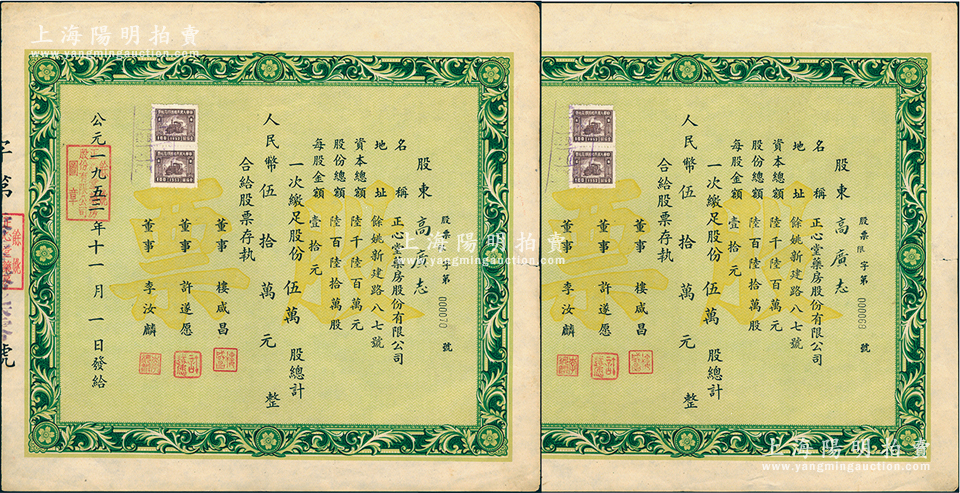 上海陽明拍賣
www.yangmingauction.com
股票
股票限字第000070號
股東 高廣志
名稱 正心堂藥房股份有限公司
地址 餘姚新建路八七號
資本總額 陸千陸百萬元
股份總額 陸百陸拾萬股
每股金額 壹拾元
一次繳足股份 伍萬 股總計
人民幣伍拾萬元整
合給股票存執
董事 樓咸昌
董事 許遂愿
董事 李汝麟
公元一九五三年十一月一日發給
字第
號
上海陽明拍賣
www.yangmingauction.com
股票
股票限字第000069號
股東 高廣志
名稱 正心堂藥房股份有限公司
地址 餘姚新建路八七號
資本總額 陸千陸百萬元
股份總額 陸百陸拾萬股
每股金額 壹拾元
一次繳足股份 伍萬 股總計
人民幣伍拾萬元整
合給股票存執
董事 樓咸昌
董事 許遂愿
董事 李汝麟
上海陽明拍賣
www.yangmingauction.com
上海陽明拍賣
www.yangmingauction.com